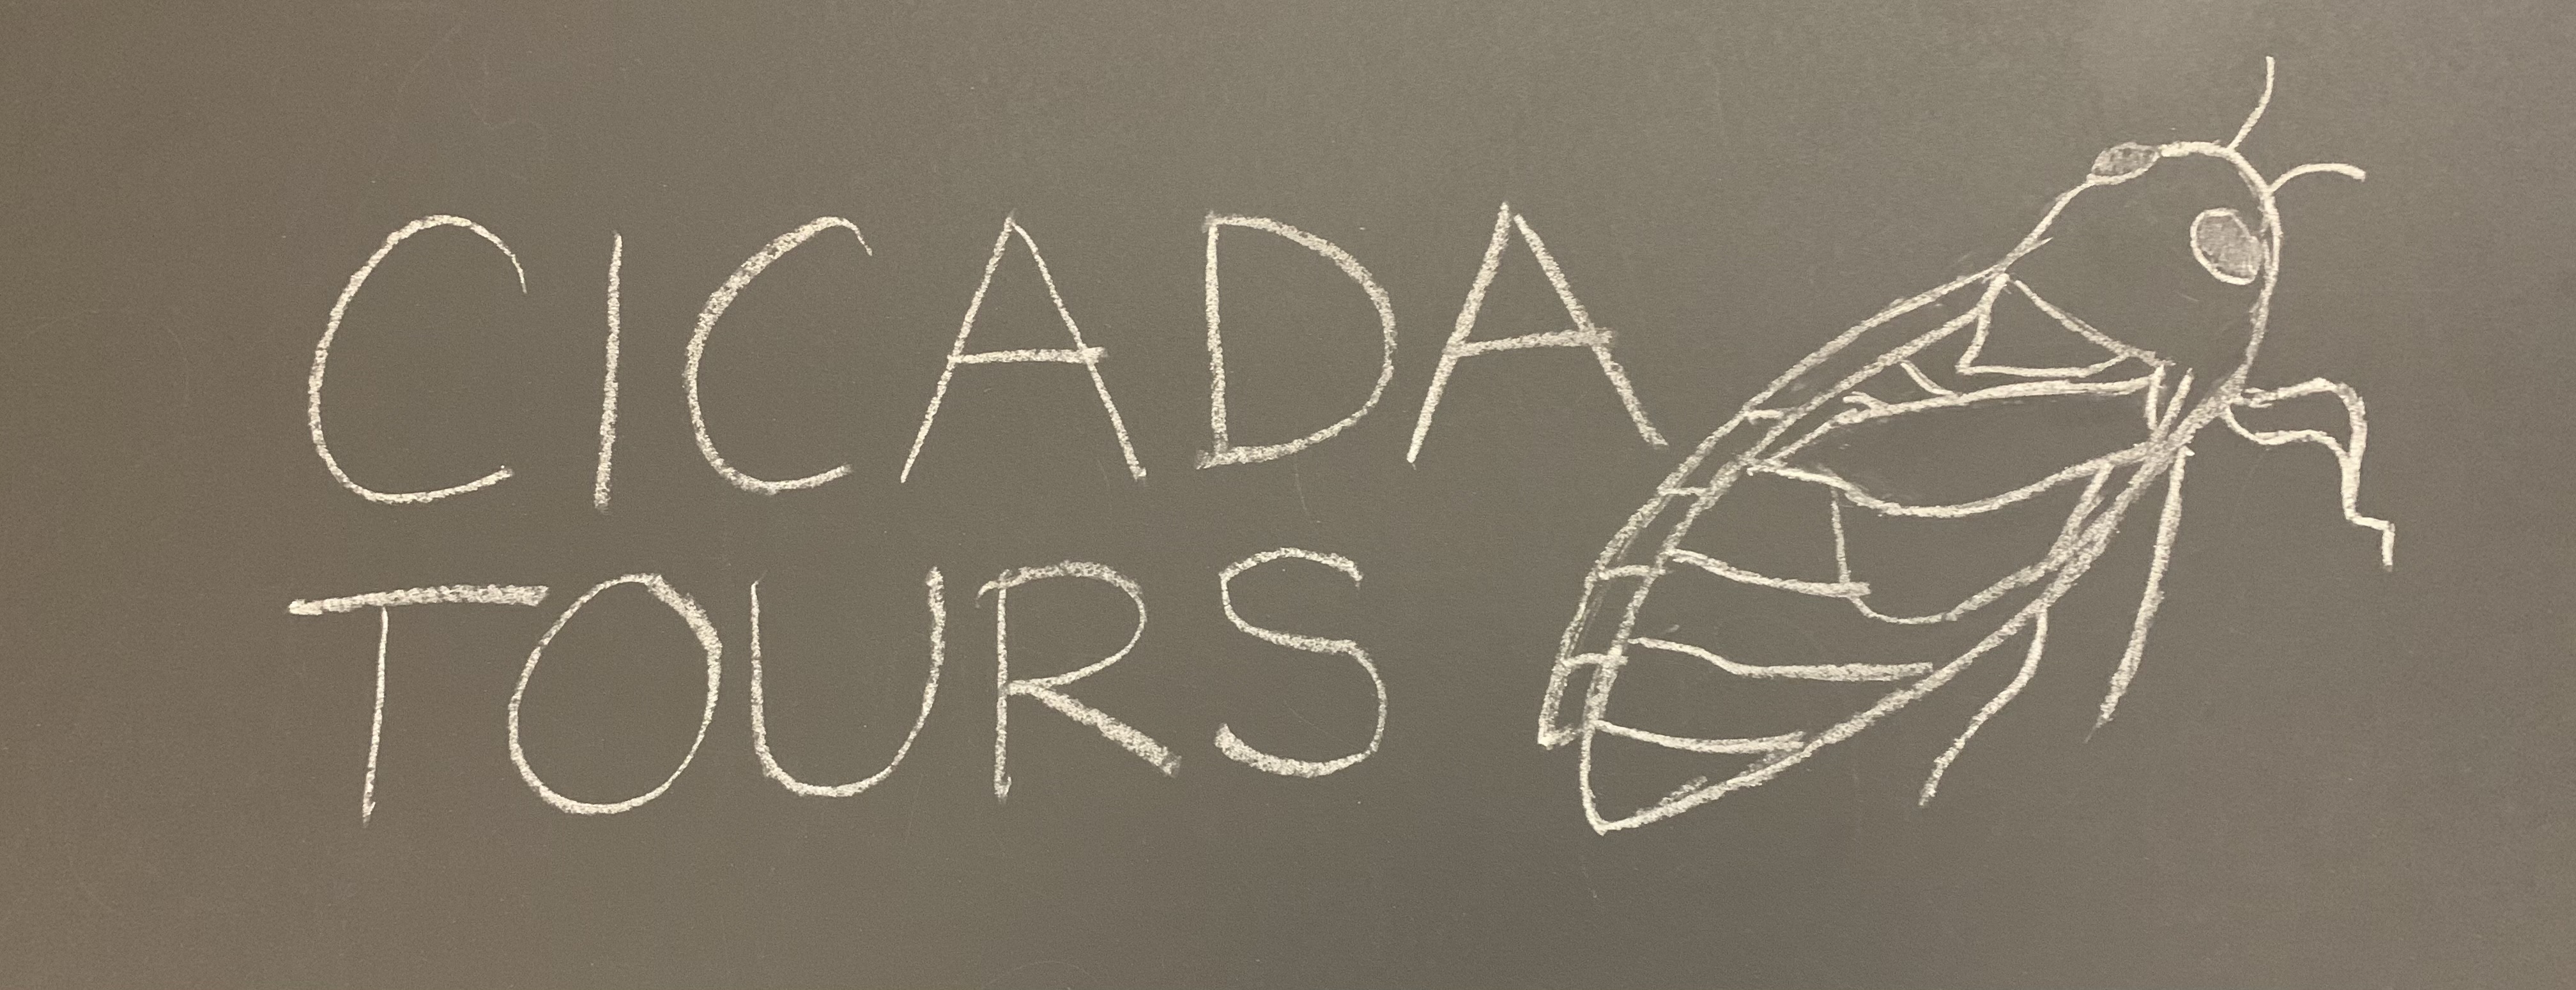 CICADA
TOURS